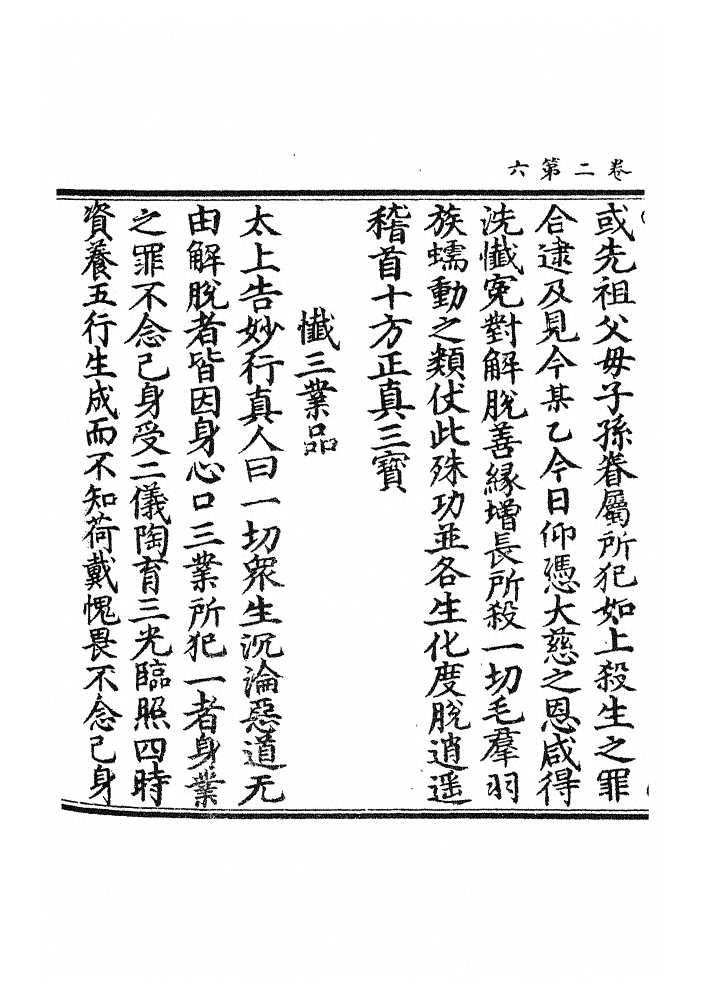 卷二第六
或先祖父毋子孫眷屬所犯如上殺生之罪
合逮及見今某乙今日仰憑大慈之恩咸得
洗懺寃對解脫善緣增長所殺一切毛羣羽
族蠕動之類仗此殊功並各生化度脫逍遥
稽首十方正真三寳
懺三業品
太上告妙行真人曰一切衆生沉淪惡道无
由解脫者皆因身心口三業所犯一者身業
之罪不念己身受二儀陶育三光臨照四時
資養五行生成而不知荷戴愧畏不念己身